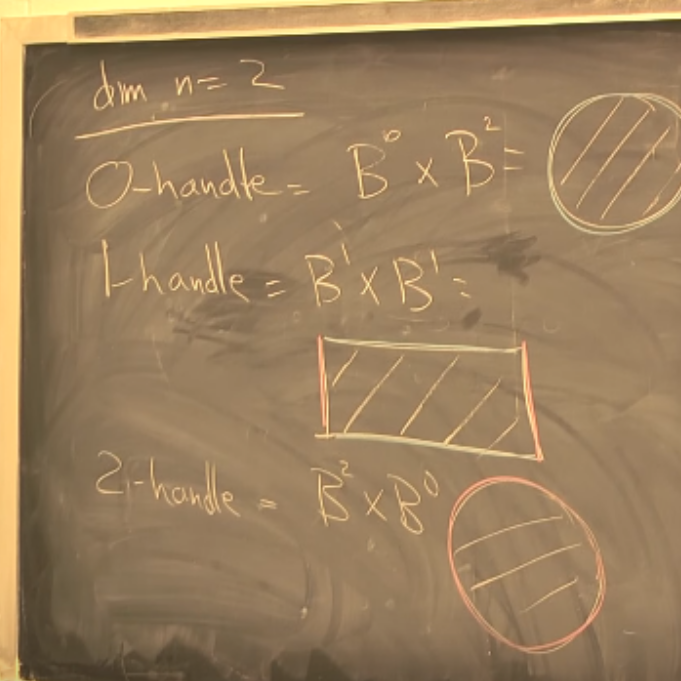 dim n = 2
0-handle = B⁰ × B² =
1-handle = B¹ × B¹ =
2-handle = B² × B⁰